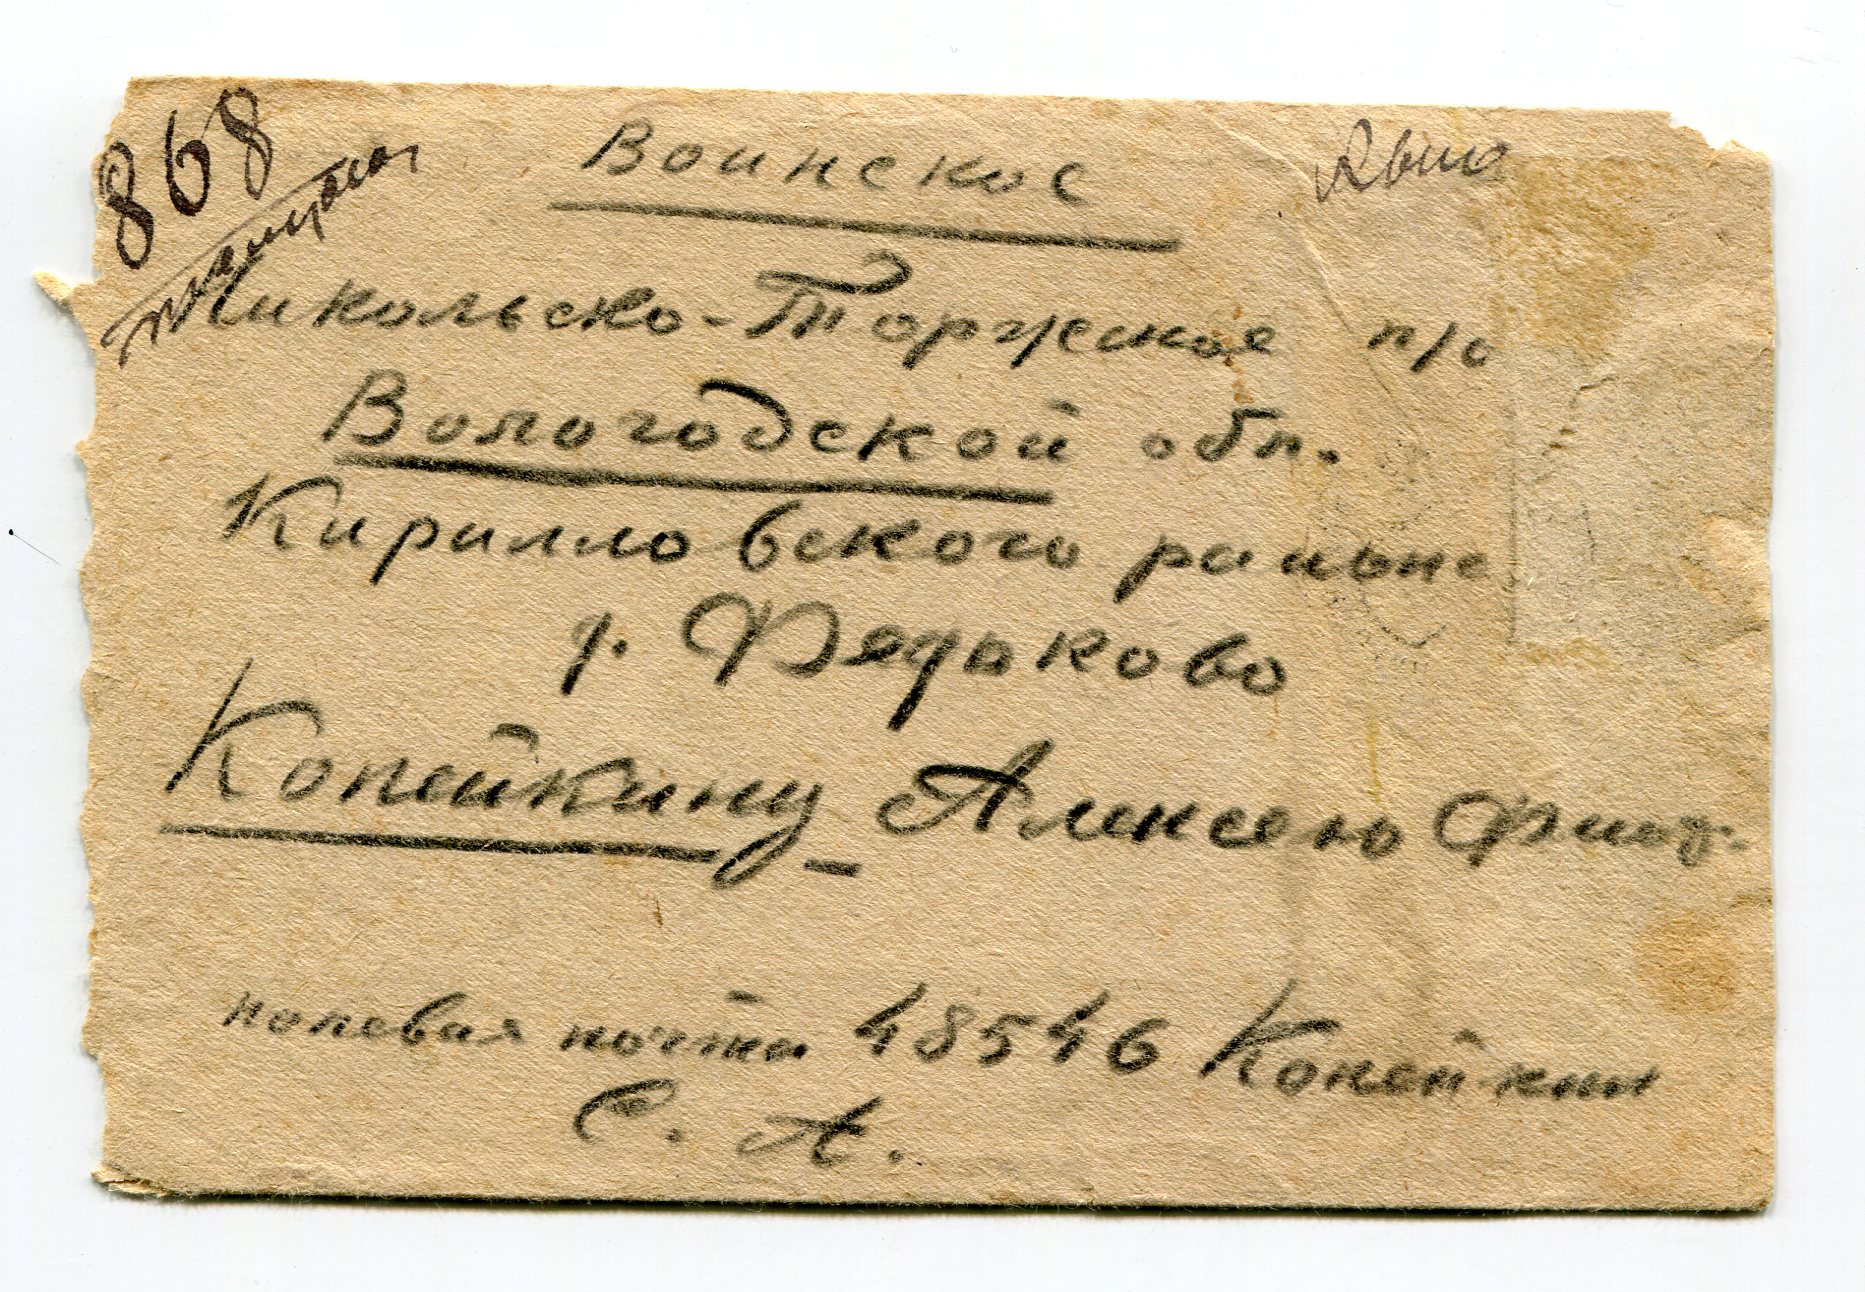 868
Воинское
Никольско-Торжское п/о
Вологодской обл.
Кирилловского района
д. Федьково
Копейкину Алексею
полевая почта 48546 Копейкин
С. А.